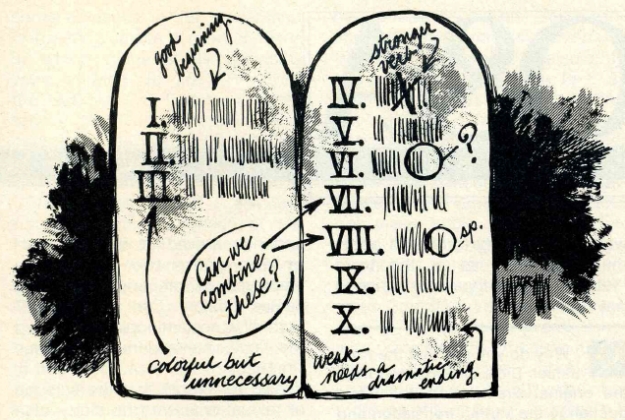 good
beginning
I.
II.
III.
Can we
combine
these?
colorful but
unnecessary
stronger
verb
IV.
V.
VI.
?
VII.
VIII.
sp.
IX.
X.
weak—
needs a
dramatic
ending